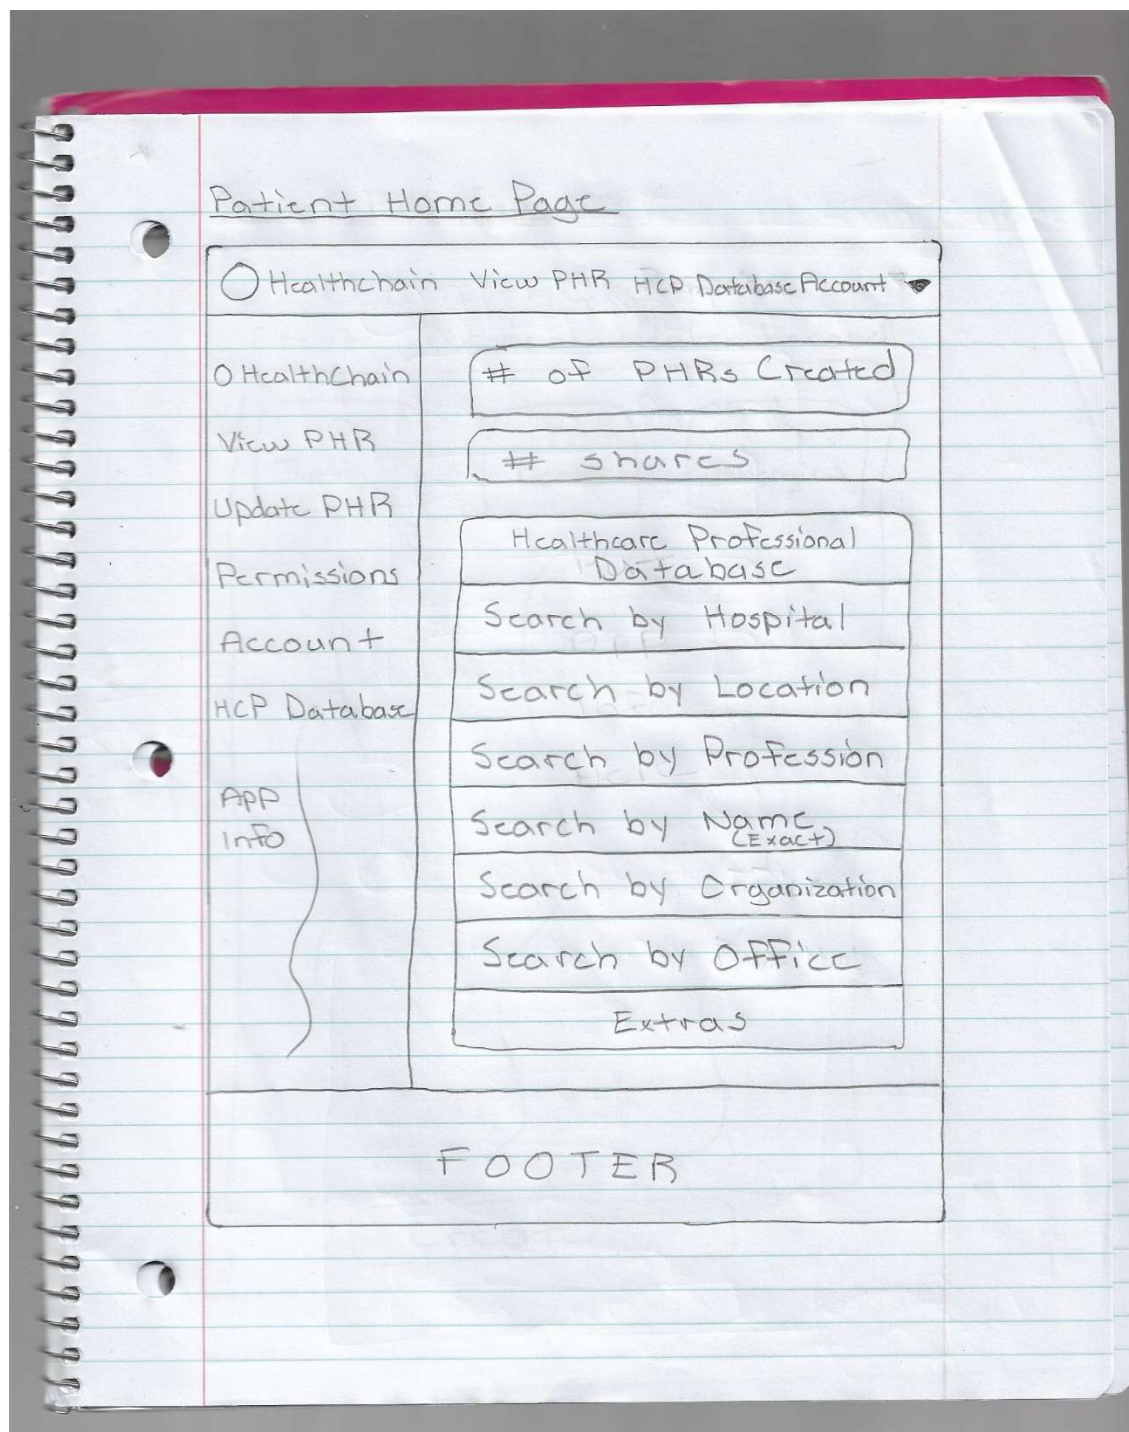 Patient Home Page
Healthchain View PHR HCP Database Account
HealthChain
View PHR
Update PHR
Permissions
Account
HCP Database
App
Info
# of PHRs Created
# shares
Healthcare Professional
Database
Search by Hospital
Search by Location
Search by Profession
Search by Name
(Exact)
Search by Organization
Search by Office
Extras
FOOTER